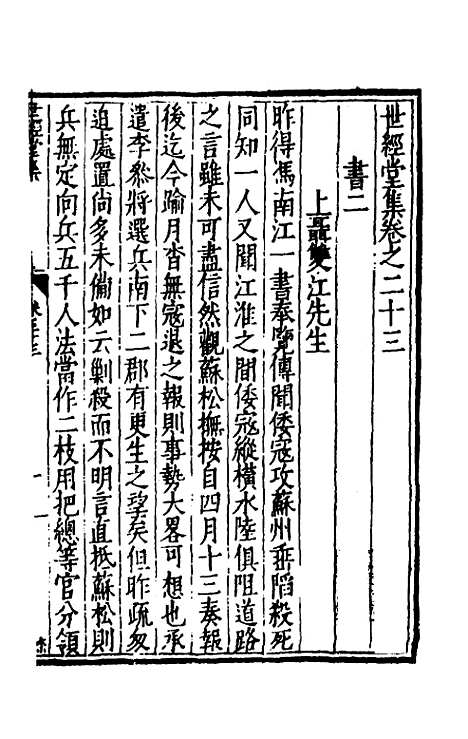 世經堂集卷之二十三
書二
上聶雙江先生
昨得馮南江一書奉覽傳聞倭寇攻蘇州垂陷殺死
同知一人又聞江淮之間倭寇縱橫水陸俱阻道路
之言雖未可盡信然觀蘇松撫按自四月十三奏報
後迄今踰月杳無寇退之報則事勢大畧可想也承
遣李叅將選兵南下二郡有更生之望矣但昨疏匆
迫處置尚多未備如云剿殺而不明言直抵蘇松則
兵無定向兵五千人法當作二枝用把總等官分領